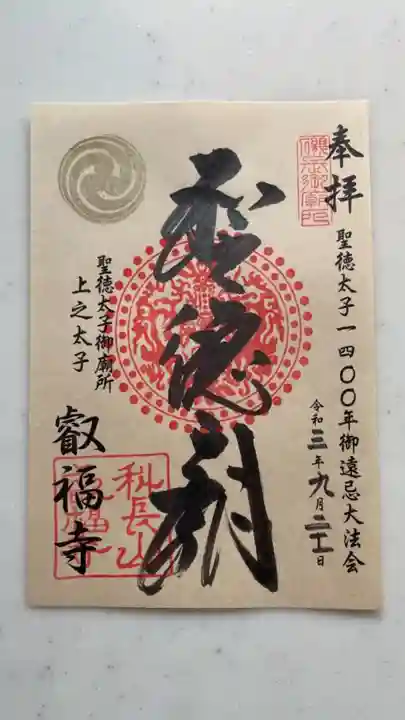 奉拝
聖徳太子一四〇〇年御遠忌大法会
令和三年九月二十日
聖徳廟
聖徳太子御廟所
上之太子
叡福寺
科長山